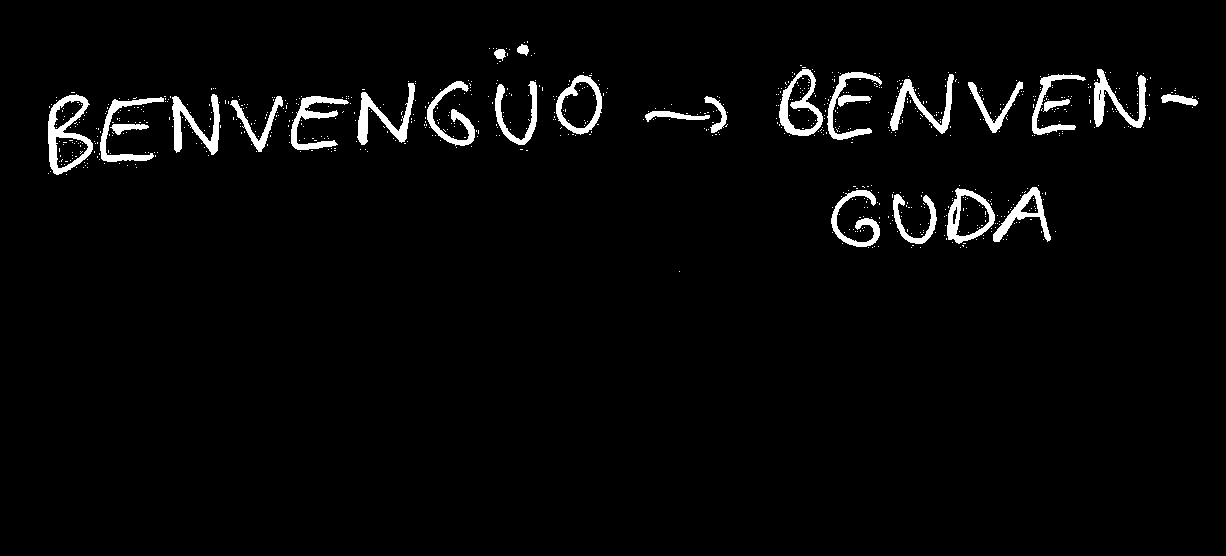 BENVENGÜO → BENVEN-
GUDA